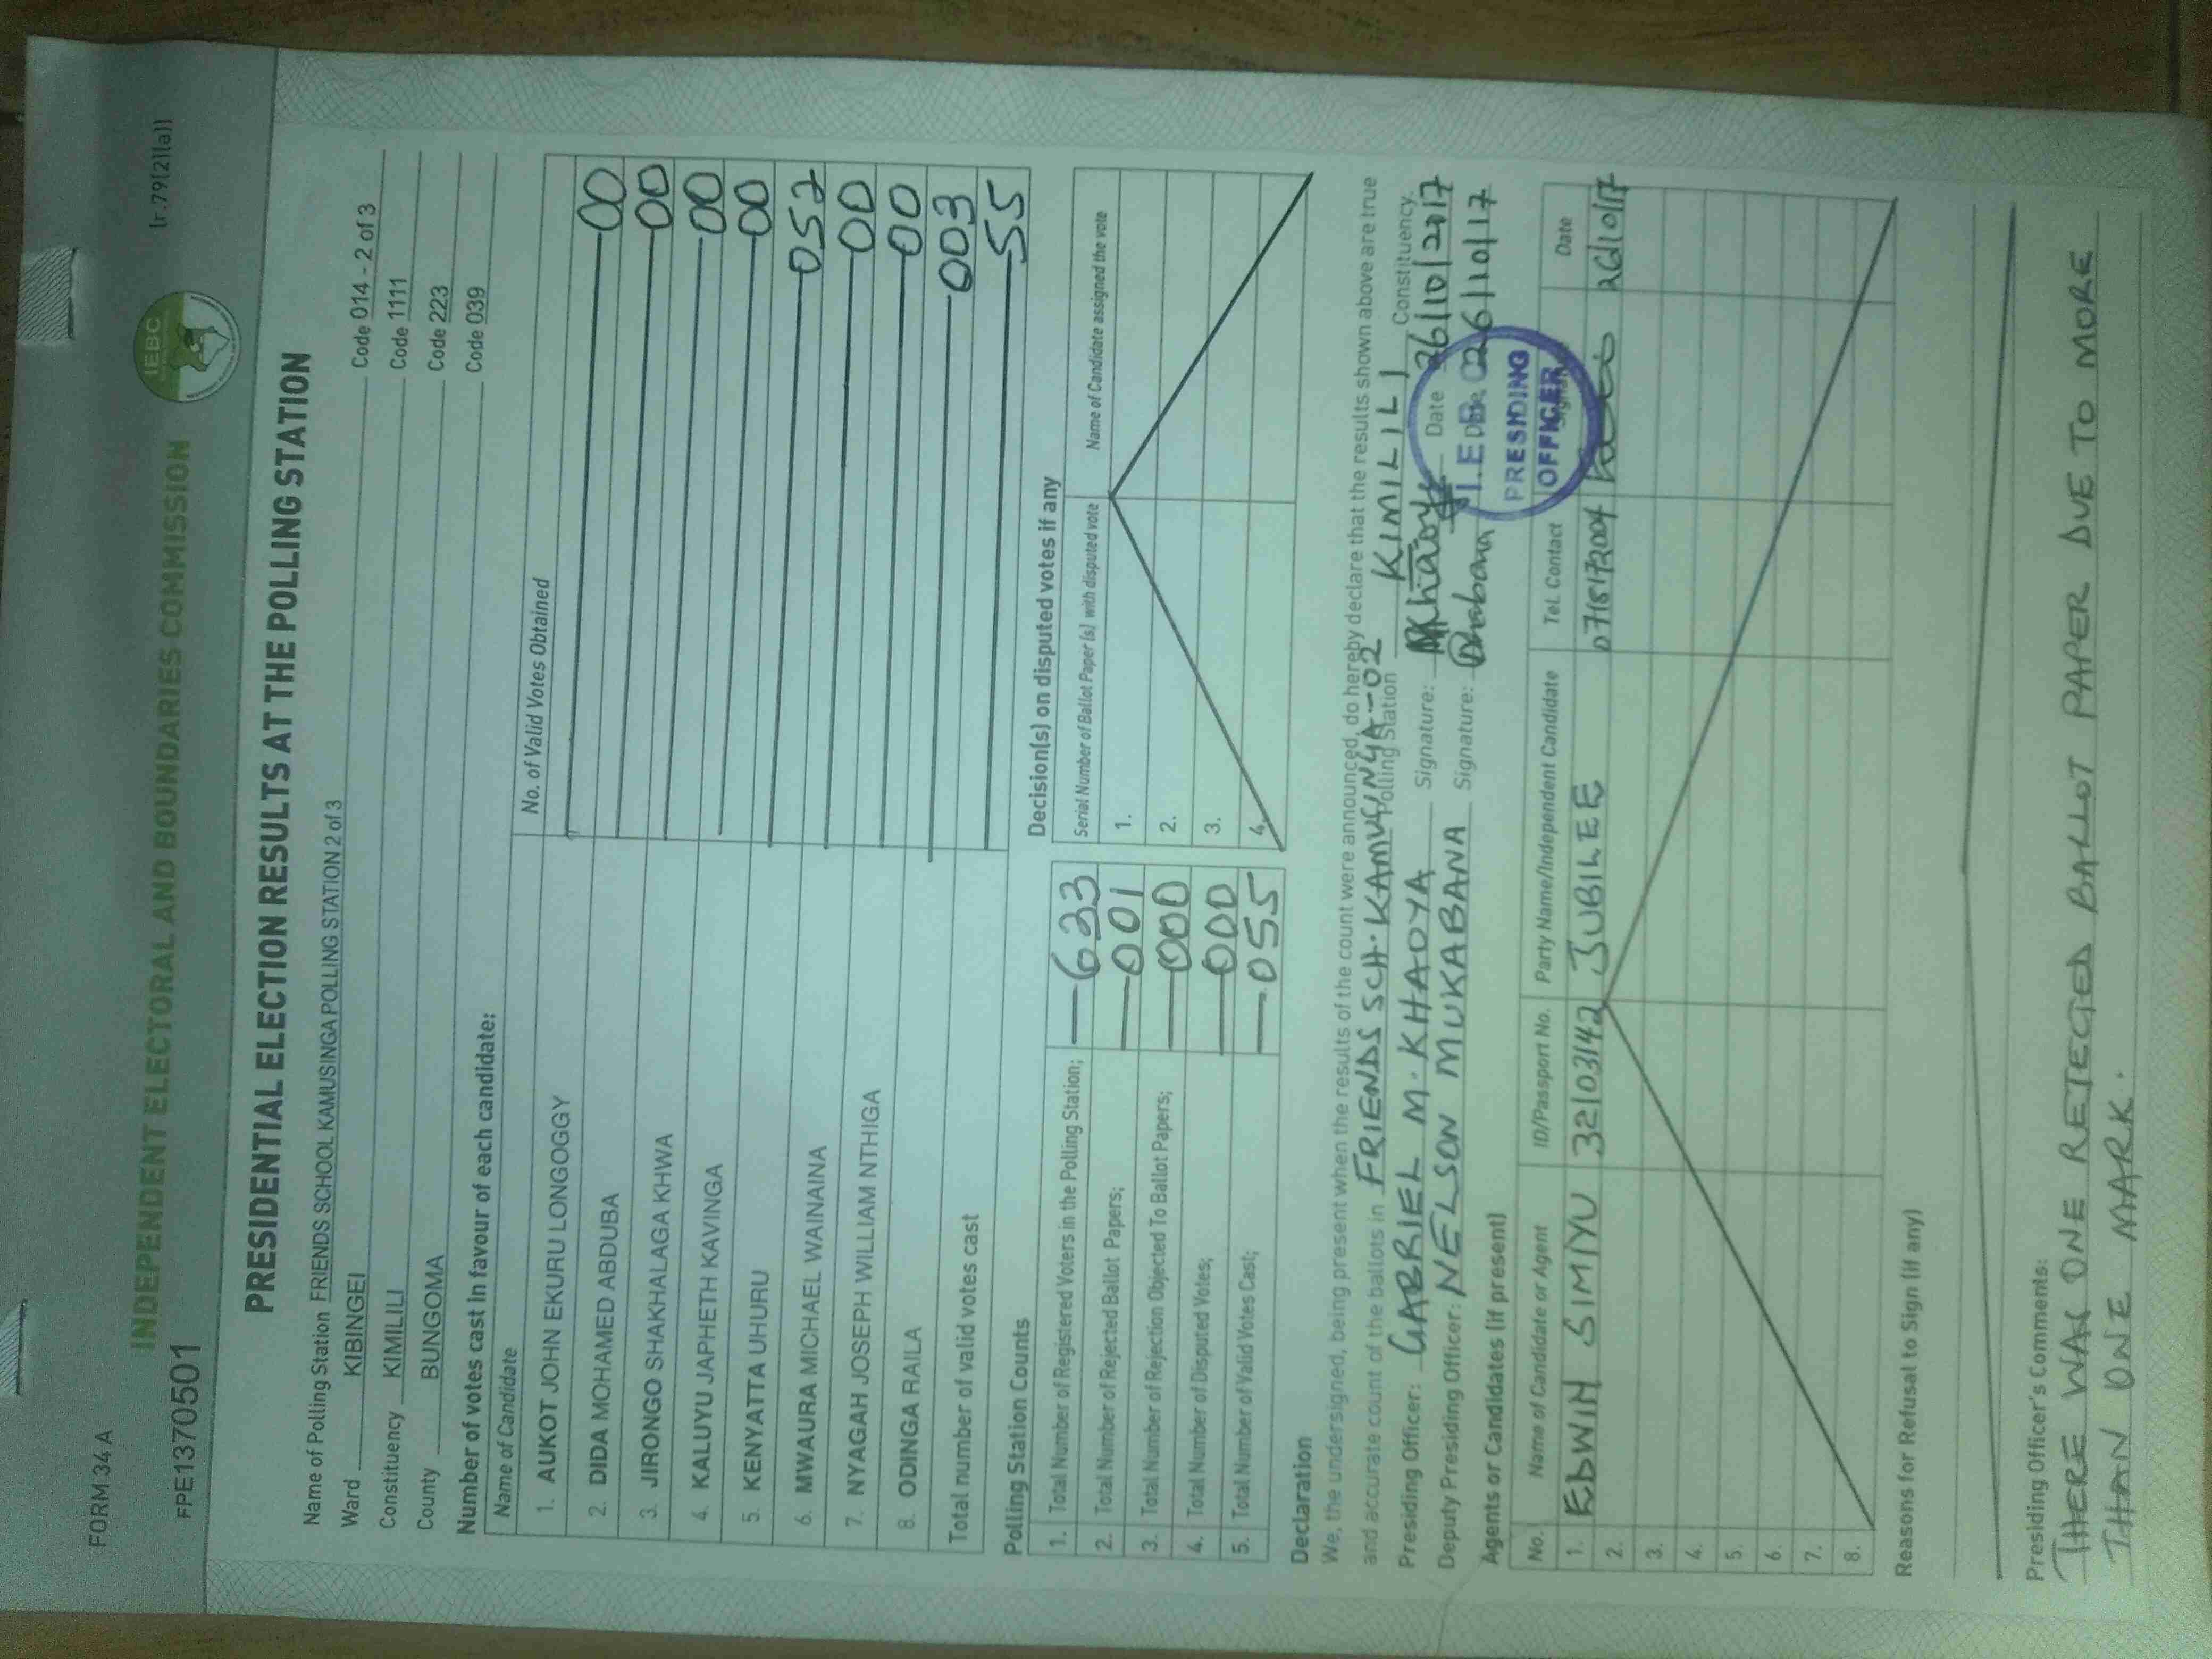 FORM 34A
INDEPENDENT ELECTORAL AND BOUNDARIES COMMISSION
IEBC
(r.79(2)(a))
FPE1370501
PRESIDENTIAL ELECTION RESULTS AT THE POLLING STATION
Name of Polling Station FRIENDS SCHOOL KAMUSINGA POLLING STATION 2 of 3 Code 014 - 2 of 3
Ward KIBINGEI Code 1111
Constituency KIMILILI Code 223
County BUNGOMA Code 039
Number of votes cast in favour of each candidate:
Name of Candidate No. of Valid Votes Obtained
1. AUKOT JOHN EKURU LONGOGGY 00
2. DIDA MOHAMED ABDUBA 00
3. JIRONGO SHAKHALAGA KHWA 00
4. KALUYU JAPHETH KAVINGA 00
5. KENYATTA UHURU 052
6. MWAURA MICHAEL WAINAINA 00
7. NYAGAH JOSEPH WILLIAM NTHIGA 00
8. ODINGA RAILA 003
Total number of valid votes cast 55
Polling Station Counts
1. Total Number of Registered Voters in the Polling Station; 633
2. Total Number of Rejected Ballot Papers; 001
3. Total Number of Rejection Objected To Ballot Papers; 000
4. Total Number of Disputed Votes; 000
5. Total Number of Valid Votes Cast; 055
Decision(s) on disputed votes if any
Serial Number of Ballot Paper (s) with disputed vote Name of Candidate assigned the vote
1.
2.
3.
4.
Declaration
We, the undersigned, being present when the results of the count were announced, do hereby declare that the results shown above are true
and accurate count of the ballots in FRIENDS SCH. KAMUSINGA-02 Polling Station KIMILILI Constituency.
Presiding Officer: GABRIEL M. KHAOYA Signature: Khaoya Date 26/10/2017
Deputy Presiding Officer: NELSON MUKABANA Signature: Date 26/10/17
I.E.B.C
PRESIDING
OFFICER
Agents or Candidates (if present)
No. Name of Candidate or Agent ID/Passport No. Party Name/Independent Candidate Tel. Contact Date
1. EDWIN SIMIYU 32103142 JUBILEE 0718172004 26/10/17
2.
3.
4.
5.
6.
7.
8.
Reasons for Refusal to Sign (if any)
Presiding Officer's Comments:
THERE WAS ONE REJECTED BALLOT PAPER DUE TO MORE
THAN ONE MARK.